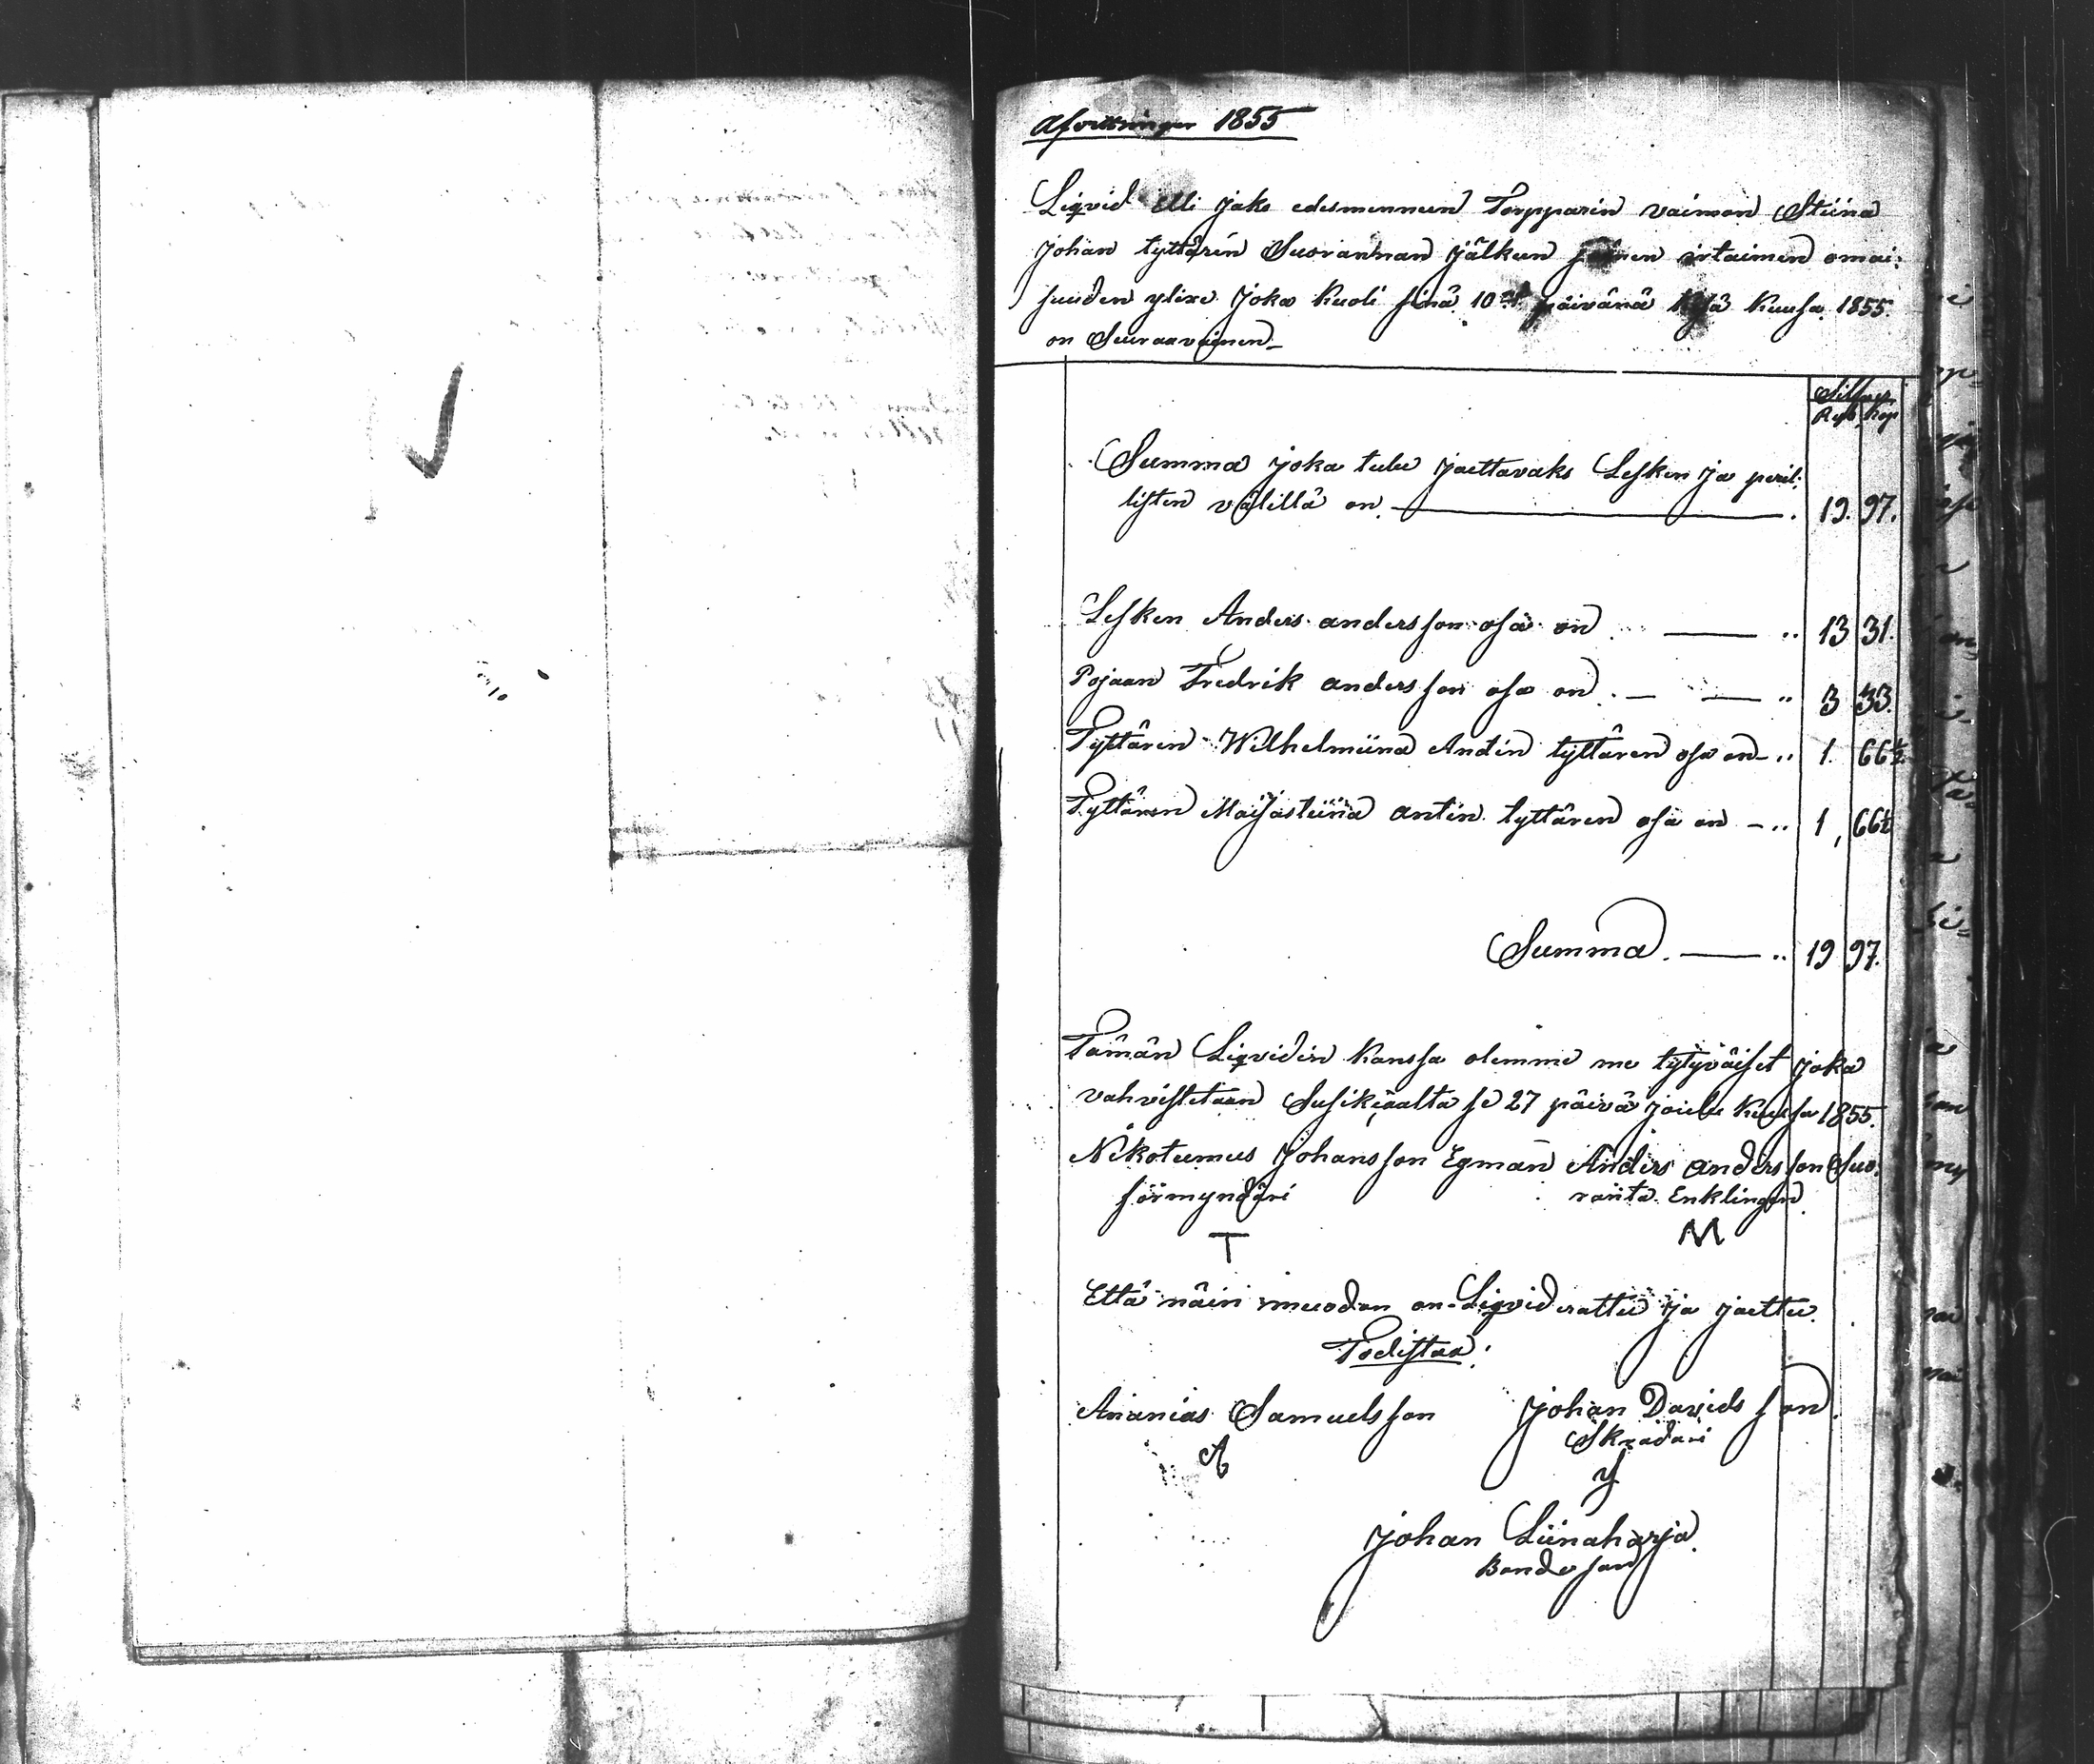 Afvittringar 1855
Liqvid Eli jako edesmenneen Torpparin vaimon Stiina
Johan tyttärin Suorannan jälkeen jäänen irtaimen omai:
suuden ylixe joka kuoli sinä 10 päivänä Kesä kuusa 1855
on Seuraavainen
Silfver
Rub Kop
Summa joka tulee jaettavaks Lesken ja peril:
listen välillä on 19. 97.
Lesken Anders andersson osa on 13 31.
Pojaan Fredrik andersson osa on 3 33.
Tyttären Wilhelmiina Antin tyttären osa on 1. 66½
Tyttären Maijastiina antin tyttären osa on 1, 66½
Summa 19 97.
Tämän Liqvidin kanssa olemme me tytyväiset joka
vahvistetaan Susikjaalta se 27 päivä joulu kuusa 1855.
Nikotemus Johansson Egman Anders andersson Suo:
förmyndäri ranta Enklingen
T M
Että näin muodon on Liqviderattu ja jaettu
Todistaa:
Ananias Samuelsson Johan Davidsson
A Skradari
Y
Johan Liinaharja
Bondeson